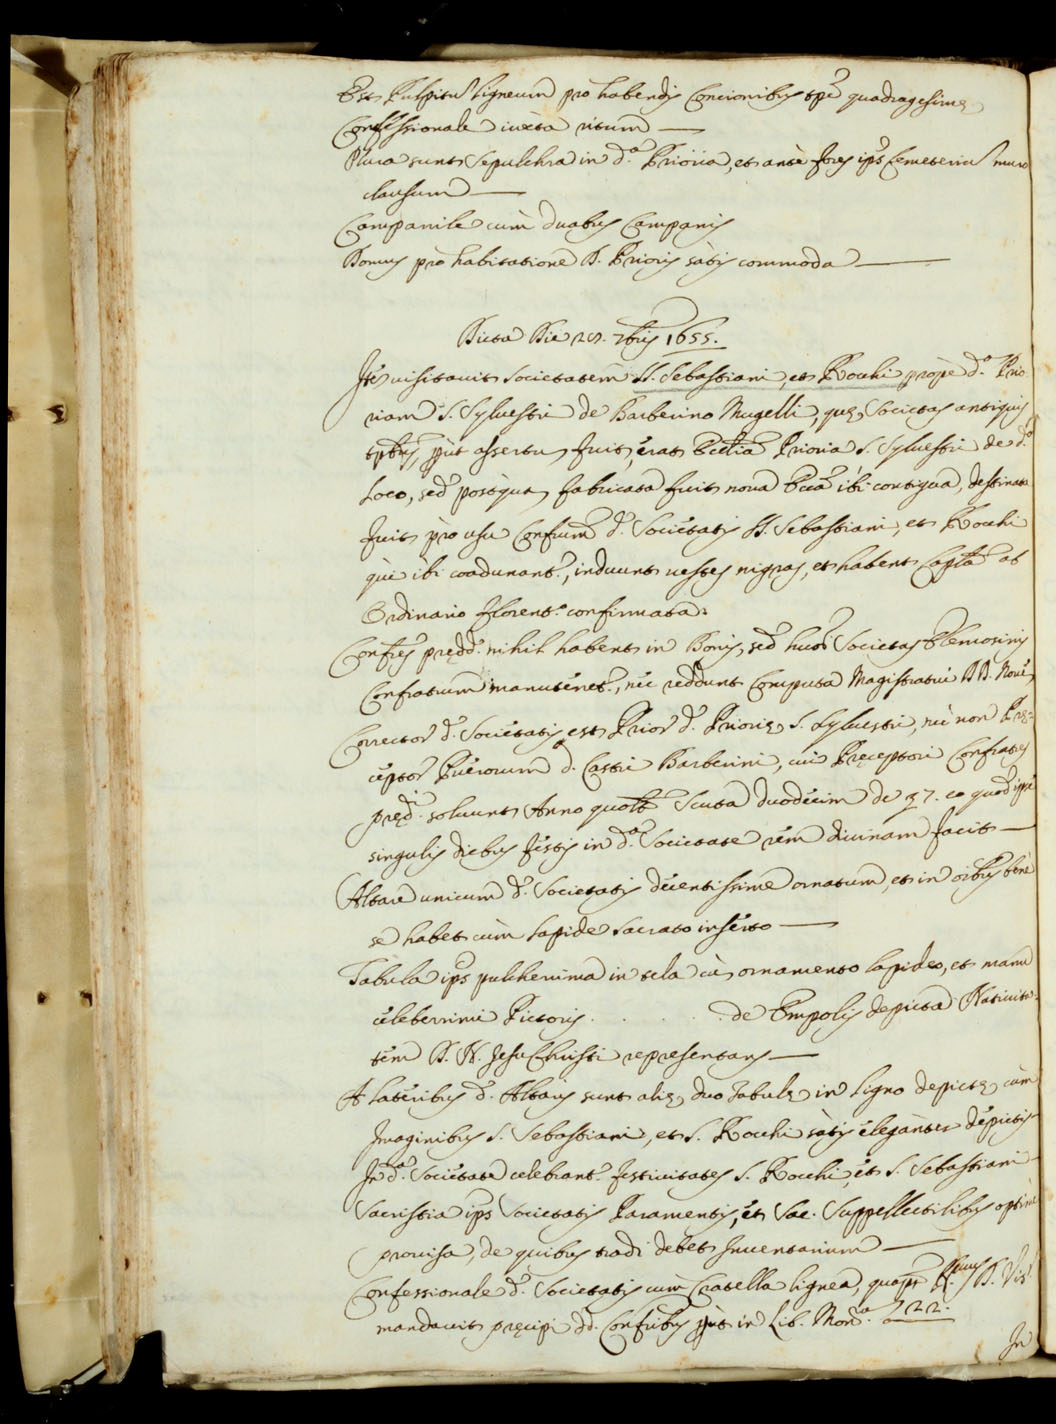 Est Pulpitu ligneum pro habendis Concionibus tpe quadragesimę
Confessionale iuxta ritum
Plura sunt Sepulchra in d.a Prioria, et ante fores ips Cemeteriu muro
clausum
Campanile cum duabus Campanis
Domus pro habitatione D. Prioris satis commoda
Dicta Die 7bris 1655.
Ite visitavit Societatem SS. Sebastiani, et Rocchi prope d.a Prio
riam S. Sylvestri de Barberino Mugelli, quę Societas antiquis
tpbus, put assertu fuit, erat Ecclia Prioria S. Sylvestri de d.o
Loco, sed postqua fabricata fuit nova Ecca ibi contigua, destinata
fuit pro usu Confrum d. Societatis SS. Sebastiani, et Rocchi
qui ibi coadunant., induunt vestes nigras, et habent Capla ab
Ordinario Florent.o confirmata.
Confres prędd. nihil habent in Bonis, sed huod Societas Elemosinis
Confratrum manutenet., nec reddunt Computa Magistratui DD. Nove
Corrector d. Societatis est Prior d. Priorię S. Sylvestri, nec non Prę=
ceptor Puerorum d. Castri Barberini, cui Pręceptori Confratres
pręd.i solvunt Anno quolt Scuta duodecim de 7. eo quod ipse
singulis diebus festis in d.a Societate rem divinam facit
Altare unicum d. Societatis decentissime ornatum, et in oibus bene
se habet cum lapide sacrato inserto
Tabula ips pulcherrima in tela cu ornamento lapideo, et manu
celeberrimi Pictoris . . . . . de Empolis depicta Nativita
tem D. N. Jesu Christi representans
A lateribus d. Altaris sunt alię duo Tabulę in ligno depictę cum
Imaginibus S. Sebastiani, et S. Rocchi satis eleganter depictis
In d.a Societate celebrant. festivitates S. Rocchi, et S. Sebastiani
Sacristia ips Societatis Paramentis, et Sac. Suppellectilibus optime
provisa, de quibus tradi debet Inventarium
Confessionale d. Societatis cum Cratella lignea, D. Vis.
mandavit pręcipi dd. Confribus put in Lib. Mon.a 722.
In